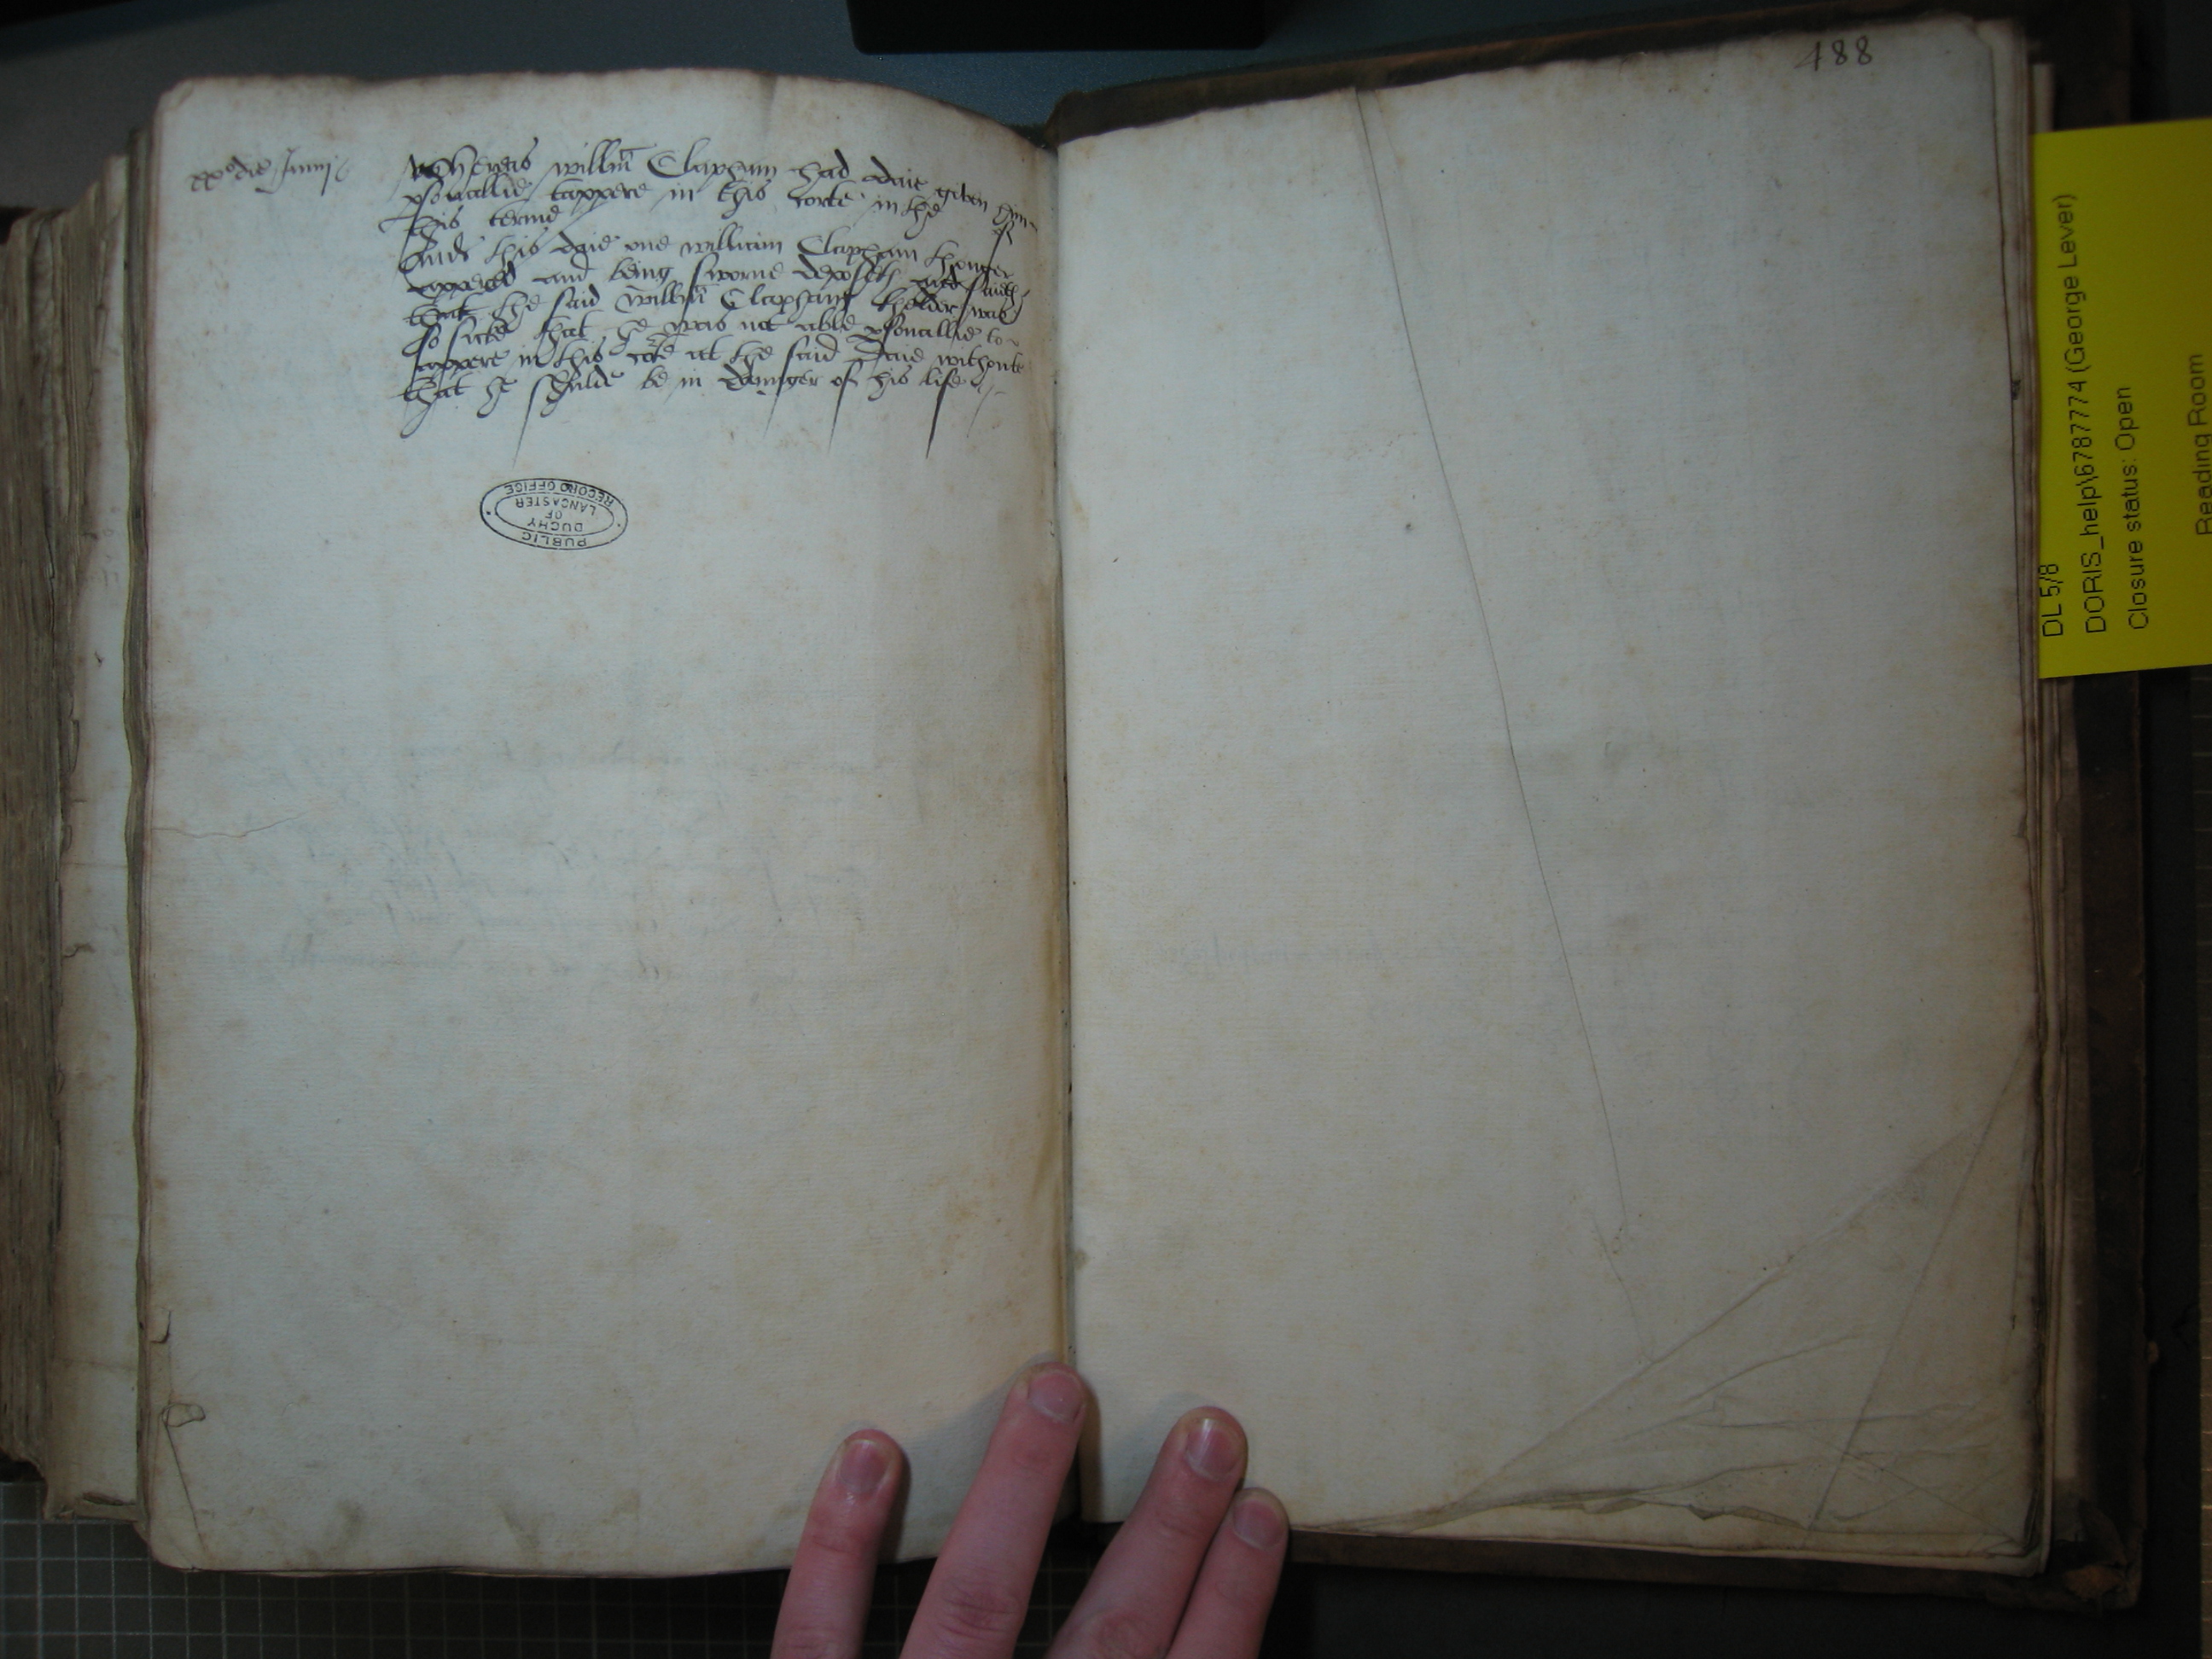 xx° die Junij
Whereas willm Clapham had daie given him
psonallie tappere in this corte in the
this terme
And this daie one william Clapham thonger
appered and being sworne deposeth and saieth
that the said willm Clapham thelder was
so sicke that he was not able psonallie to
appere in this corte at the said daie withoute
that he shulde be in daunger of his life
PUBLIC
DUCHY
OF
LANCASTER
RECORD OFFICE
488
DL 5/8
DORIS_help\6787774 (George Lever)
Closure status: Open
Reading Room